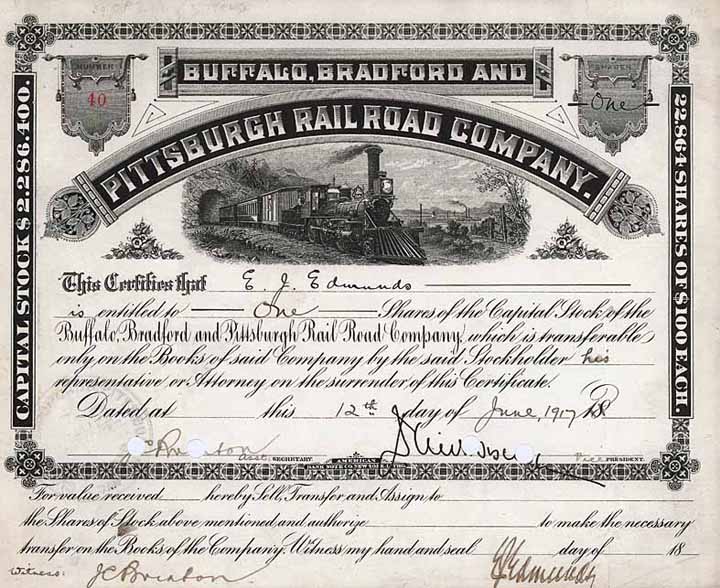 NUMBER
40
BUFFALO, BRADFORD AND
PITTSBURGH RAIL ROAD COMPANY.
One
CAPITAL STOCK $2.286.400.
22.864 SHARES OF $100 EACH.
This Certifies that E. J. Edmunds
is entitled to One Shares of the Capital Stock of the
Buffalo, Bradford and Pittsburgh Rail Road Company, which is transferable
only on the Books of said Company by the said Stockholder his
representative or Attorney on the surrender of this Certificate.
Dated at this 12th day of June, 1917 18
Asst. SECRETARY
Vice PRESIDENT.
AMERICAN
For value received hereby Sell, Transfer and Assign to
the Shares of Stock above mentioned and authorize to make the necessary
transfer on the Books of the Company. Witness my hand and seal day of 18
Witness:
EJEdmunds